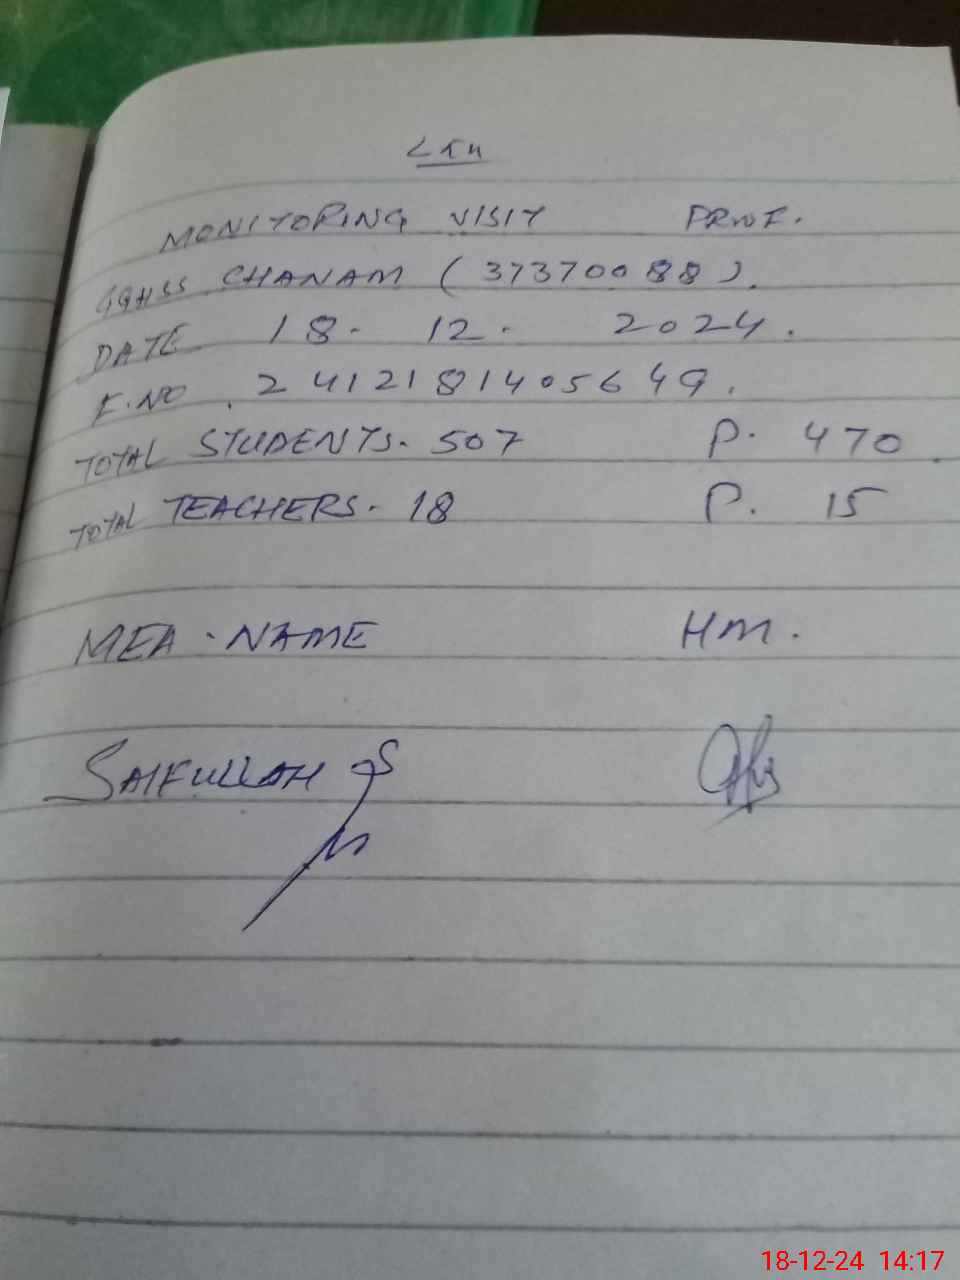 MONITORING VISIT PROOF.
GGHSS CHANAM (37370088).
DATE 18. 12. 2024.
F.NO. 2412181405649.
TOTAL STUDENTS. 507 P. 470.
TOTAL TEACHERS. 18 P. 15
MEA. NAME HM.
SAIFULLAH
18-12-24 14:17